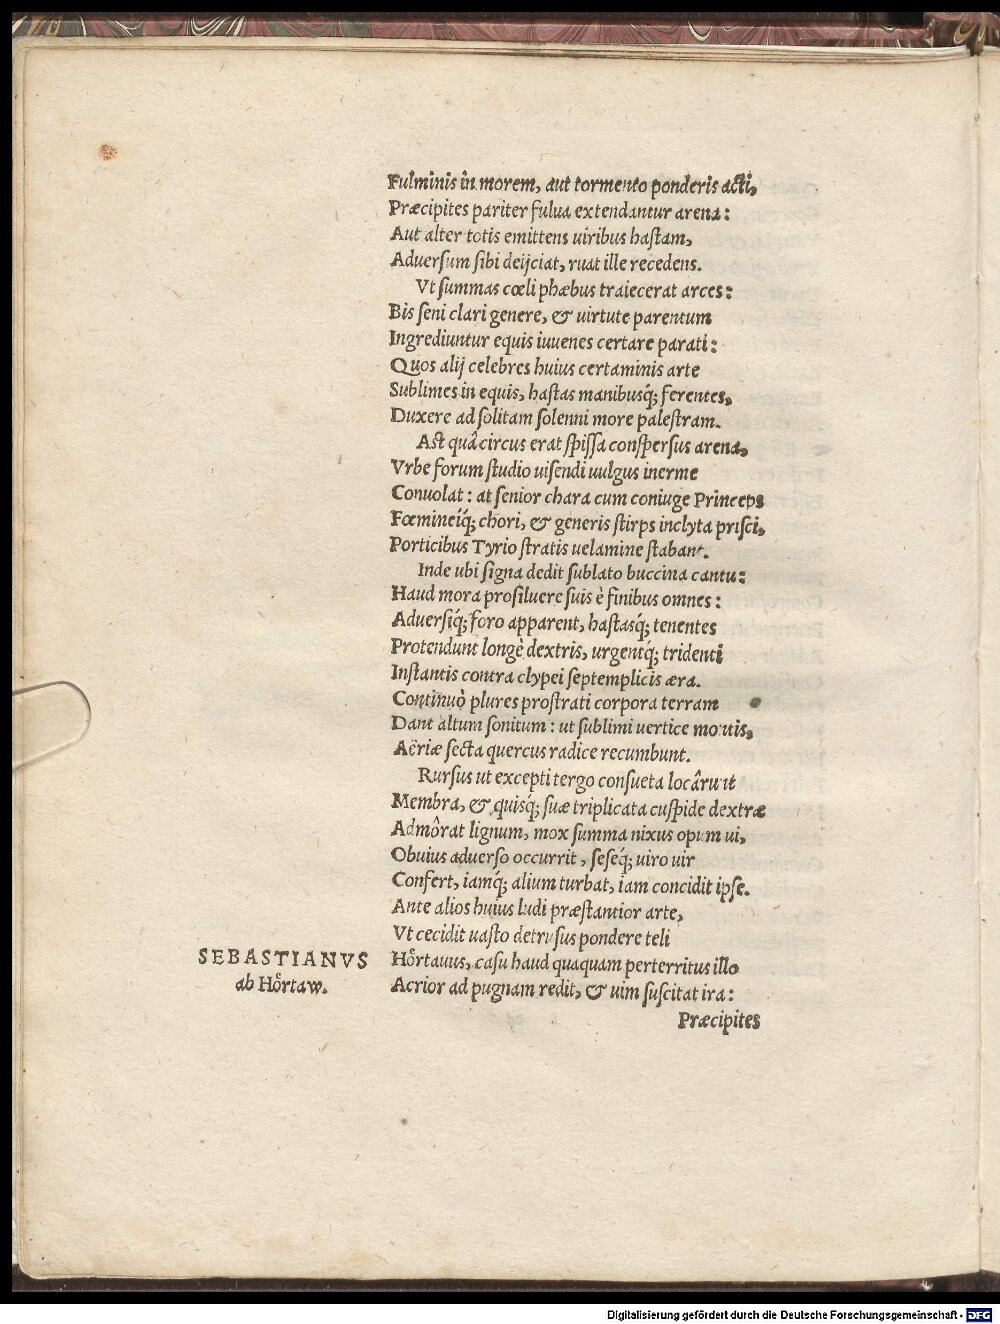 Fulminis in morem, aut tormento ponderis acti,
Præcipites pariter fulua extendantur arena:
Aut alter totis emittens uiribus hastam,
Aduersum sibi deijciat, ruat ille recedens.
Vt summas cœli phæbus traiecerat arces:
Bis seni clari genere, & uirtute parentum
Ingrediuntur equis iuuenes certare parati:
Quos alij celebres huius certaminis arte
Sublimes in equis, hastas manibusq́; ferentes,
Duxere ad solitam solenni more palestram.
Ast quâ circus erat spissa conspersus arena,
Vrbe forum studio uisendi uulgus inerme
Conuolat: at senior chara cum coniuge Princeps
Fœmineiq́; chori, & generis stirps inclyta prisci,
Porticibus Tyrio stratis uelamine stabant.
Inde ubi signa dedit sublato buccina cantu:
Haud mora prosiluere suis è finibus omnes:
Aduersiq́; foro apparent, hastasq́; tenentes
Protendunt longè dextris, urgentq́; tridenti
Instantis contra clypei septemplicis æra.
Continuò plures prostrati corpora terram
Dant altum sonitum: ut sublimi uertice montis,
Aëriæ secta quercus radice recumbunt.
Rursus ut excepti tergo consueta locârunt
Membra, & quisq́; suæ triplicata cuspide dextræ
Admôrat lignum, mox summa nixus opum ui,
Obuius aduerso occurrit, seseq́; uiro uir
Confert, iamq́; alium turbat, iam concidit ipse.
Ante alios huius ludi præstantior arte,
Vt cecidit uasto detrusus pondere teli
SEBASTIANVS
ab Hoͤrtaw.
Hoͤrtauus, casu haud quaquam perterritus illo
Acrior ad pugnam redit, & uim suscitat ira:
Præcipites
Digitalisierung gefördert durch die Deutsche Forschungsgemeinschaft - DFG